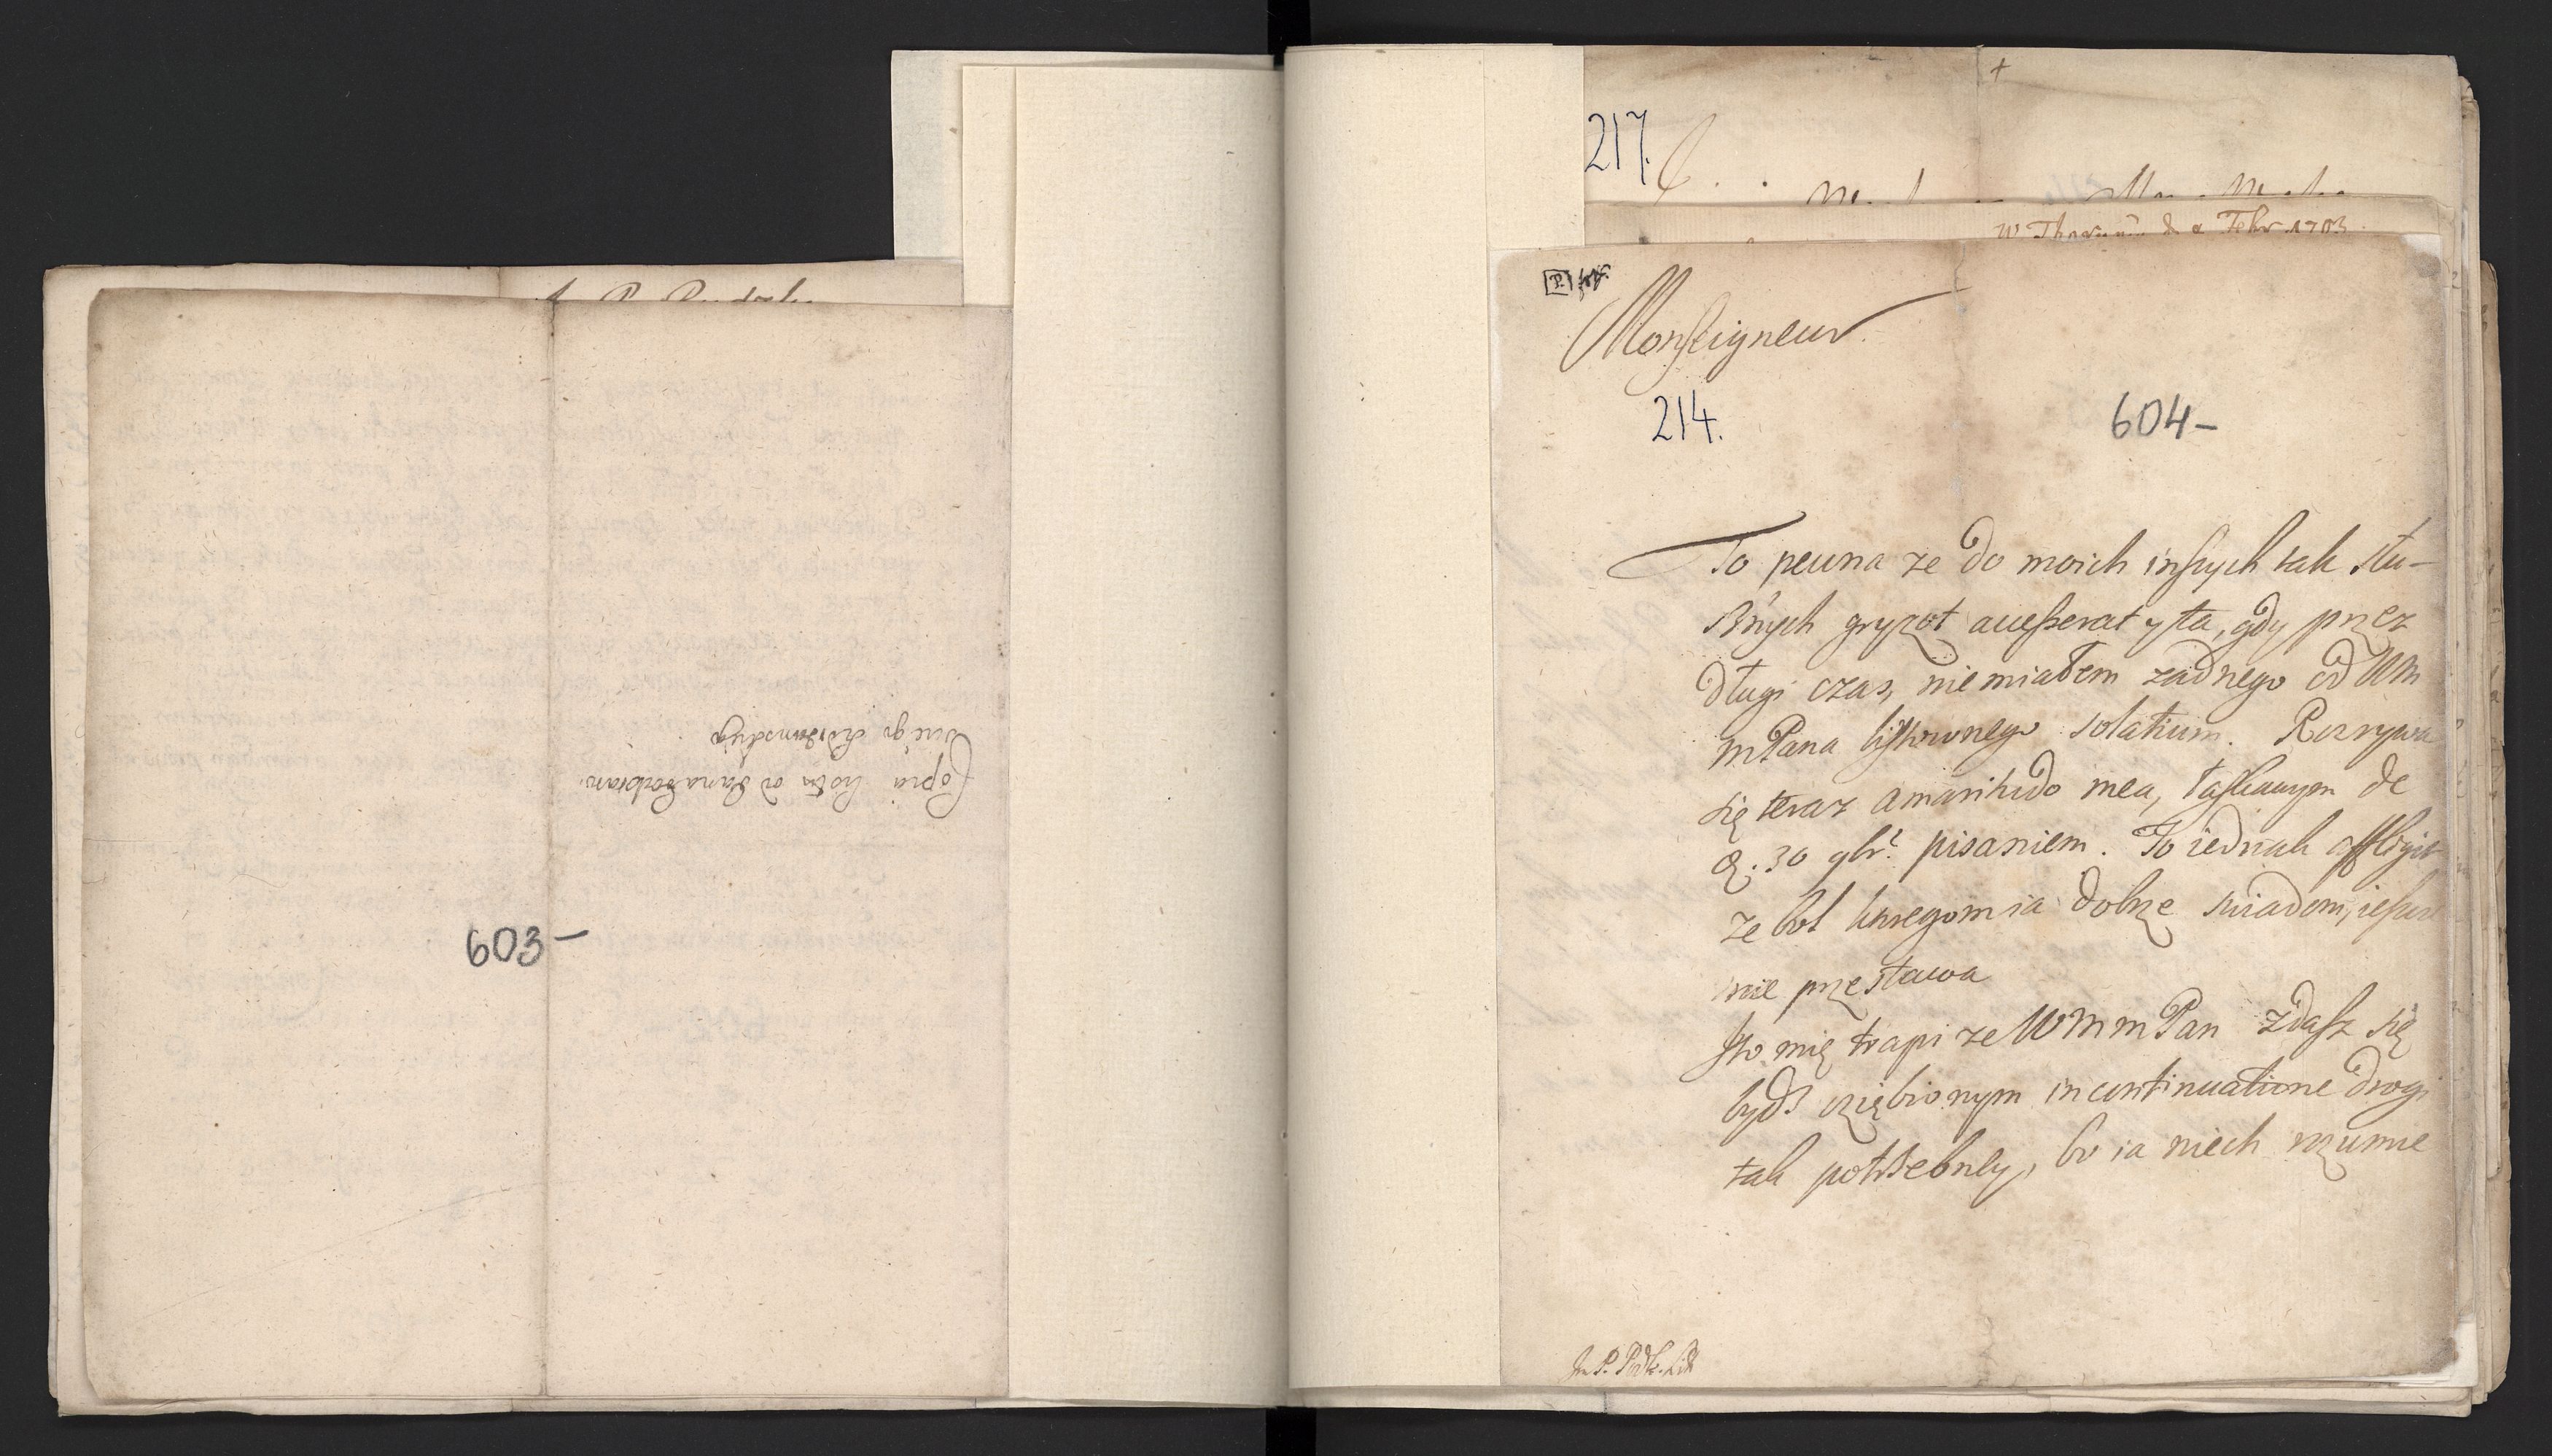 603-
Copia listu od Pana
217.
W Thoruniu d. 2 Febr 1703.
Monseigneur.
214.
604-
To pewna ze do moich inszych tak słu-
sznych gryzot accesserat y ta, gdy przez
długi czas, nie miałem zadnego od WM
mPana listownego solatium. Rozrywa
się teraz amaritudo mea, łaskawym de
d. 30 9br. pisaniem. To iednak affligit
ze bol ktorego m ia dobrze swiadom, ieszcze
nie przestawa
Sto mię trapi ze WM mPan zdasz się
bydz oziębionym in continuatione drogi
tak potrzebney, bo ia niech rozumie
Jm P. Podk. Lit